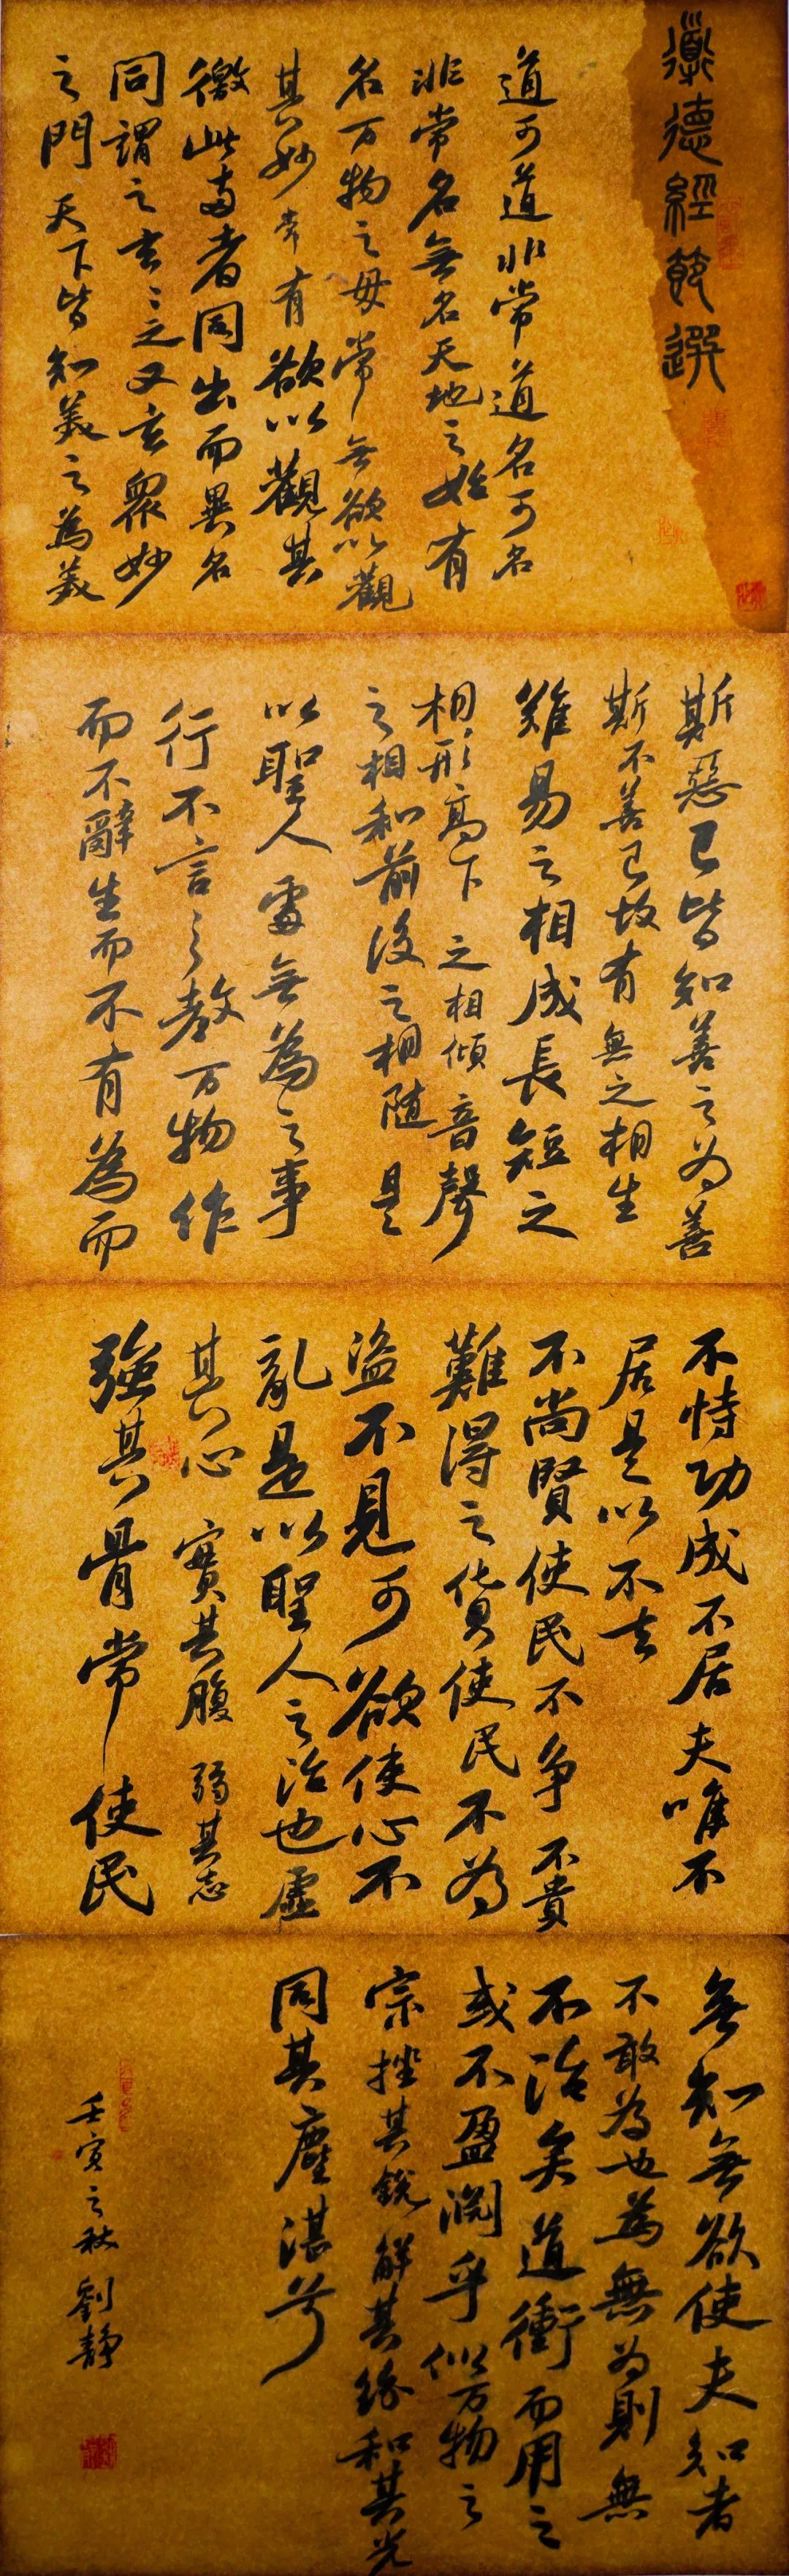 道德經節選
道可道非常道名可名
非常名無名天地之始有
名万物之母常無欲以觀
其妙常有欲以觀其
徼此两者同出而異名
同謂之玄玄之又玄衆妙
之門天下皆知美之為美
斯惡已皆知善之为善
斯不善已故有無之相生
難易之相成長短之
相形高下之相傾音聲
之相和前後之相随是
以聖人處無為之事
行不言之教万物作
而不辭生而不有為而
不恃功成不居夫唯不
居是以不去
不尚賢使民不争不貴
難得之貨使民不为
盜不見可欲使心不
亂是以聖人之治也虛
其心實其腹弱其志
強其骨常使民
無知無欲使夫知者
不敢為也為無为則無
不治矣道衝而用之
或不盈淵乎似万物之
宗挫其銳解其紛和其光
同其塵湛兮
壬寅之秋劉靜